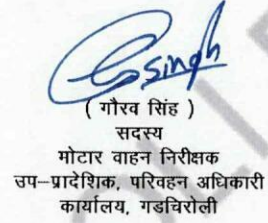 Gsingh
( गौरव सिंह )
सदस्य
मोटार वाहन निरीक्षक
उप–प्रादेशिक, परिवहन अधिकारी
कार्यालय, गडचिरोली